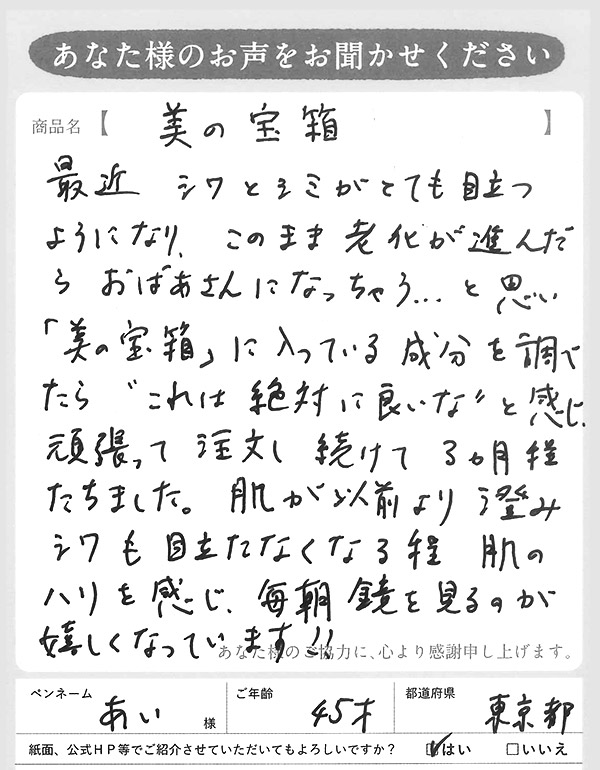 あなた様のお声をお聞かせください
商品名【 美の宝箱 】
最近 シワとシミがとても目立つ
ようになり、このまま老化が進んだ
ら おばあさんになっちゃう…と思い
「美の宝箱」に入っている成分を調べ
たら“これは絶対に良いな”と感じ、
頑張って 注文し 続けて 3ヵ月程
たちました。肌が以前より 澄み
シワも目立たなくなる程 肌の
ハリを感じ、毎朝鏡を見るのが
嬉しくなっています!!
あなた様のご協力に、心より感謝申し上げます。
ペンネーム あい 様 ご年齢 45才 都道府県 東京都
紙面、公式HP等でご紹介させていただいてもよろしいですか? ☑はい □いいえ